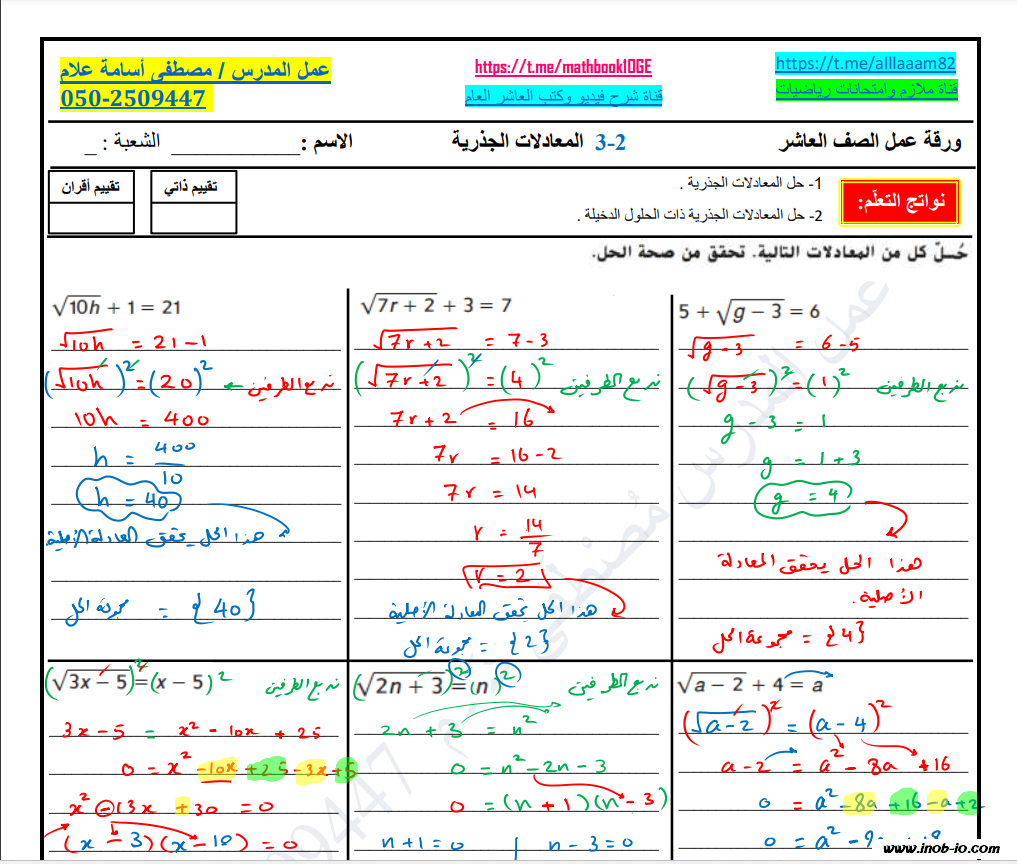 عمل المدرس / مصطفى أسامة علام
050-2509447
https://t.me/mathbook10GE
قناة شرح فيديو وكتب العاشر العام
https://t.me/alllaaam82
قناة ملازم وامتحانات رياضيات
ورقة عمل الصف العاشر 3-2 المعادلات الجذرية الاسم : ____________ الشعبة : _
نواتج التعلّم:
1- حل المعادلات الجذرية .
2- حل المعادلات الجذرية ذات الحلول الدخيلة .
تقييم ذاتي
تقييم أقران
حُـلّ كل من المعادلات التالية. تحقق من صحة الحل.
5 + √(g − 3) = 6
√(g-3) = 6-5
(√(g-3))² = (1)² نربع الطرفين
g - 3 = 1
g = 1+3
g = 4
هذا الحل يحقق المعادلة
الأصلية.
مجموعة الحل = {4}
√(7r + 2) + 3 = 7
√(7r+2) = 7-3
(√(7r+2))² = (4)² نربع الطرفين
7r+2 = 16
7r = 16-2
7r = 14
r = 14/7
r = 2
هذا الحل يحقق المعادلة الأصلية
مجموعة الحل = {2}
√10h + 1 = 21
√10h = 21-1
(√10h)² = (20)² ← نربع الطرفين
10h = 400
h = 400/10
h = 40
هذا الحل يحقق المعادلة الأصلية
مجموعة الحل = {40}
√(a − 2) + 4 = a
(√(a-2))² = (a-4)²
a-2 = a² - 8a +16
0 = a² -8a +16 -a +2
0 = a² - 9
(√(2n + 3))² = (n)² نربع الطرفين
2n + 3 = n²
0 = n² -2n - 3
0 = (n + 1)(n - 3)
n+1=0 | n-3=0
(√(3x − 5))² = (x − 5)² نربع الطرفين
3x-5 = x² - 10x + 25
0 = x² -10x +25 -3x +5
x² -13x +30 = 0
(x - 3)(x -10) = 0
عمل المدرس مُصطفى
09447
www.inob-io.com